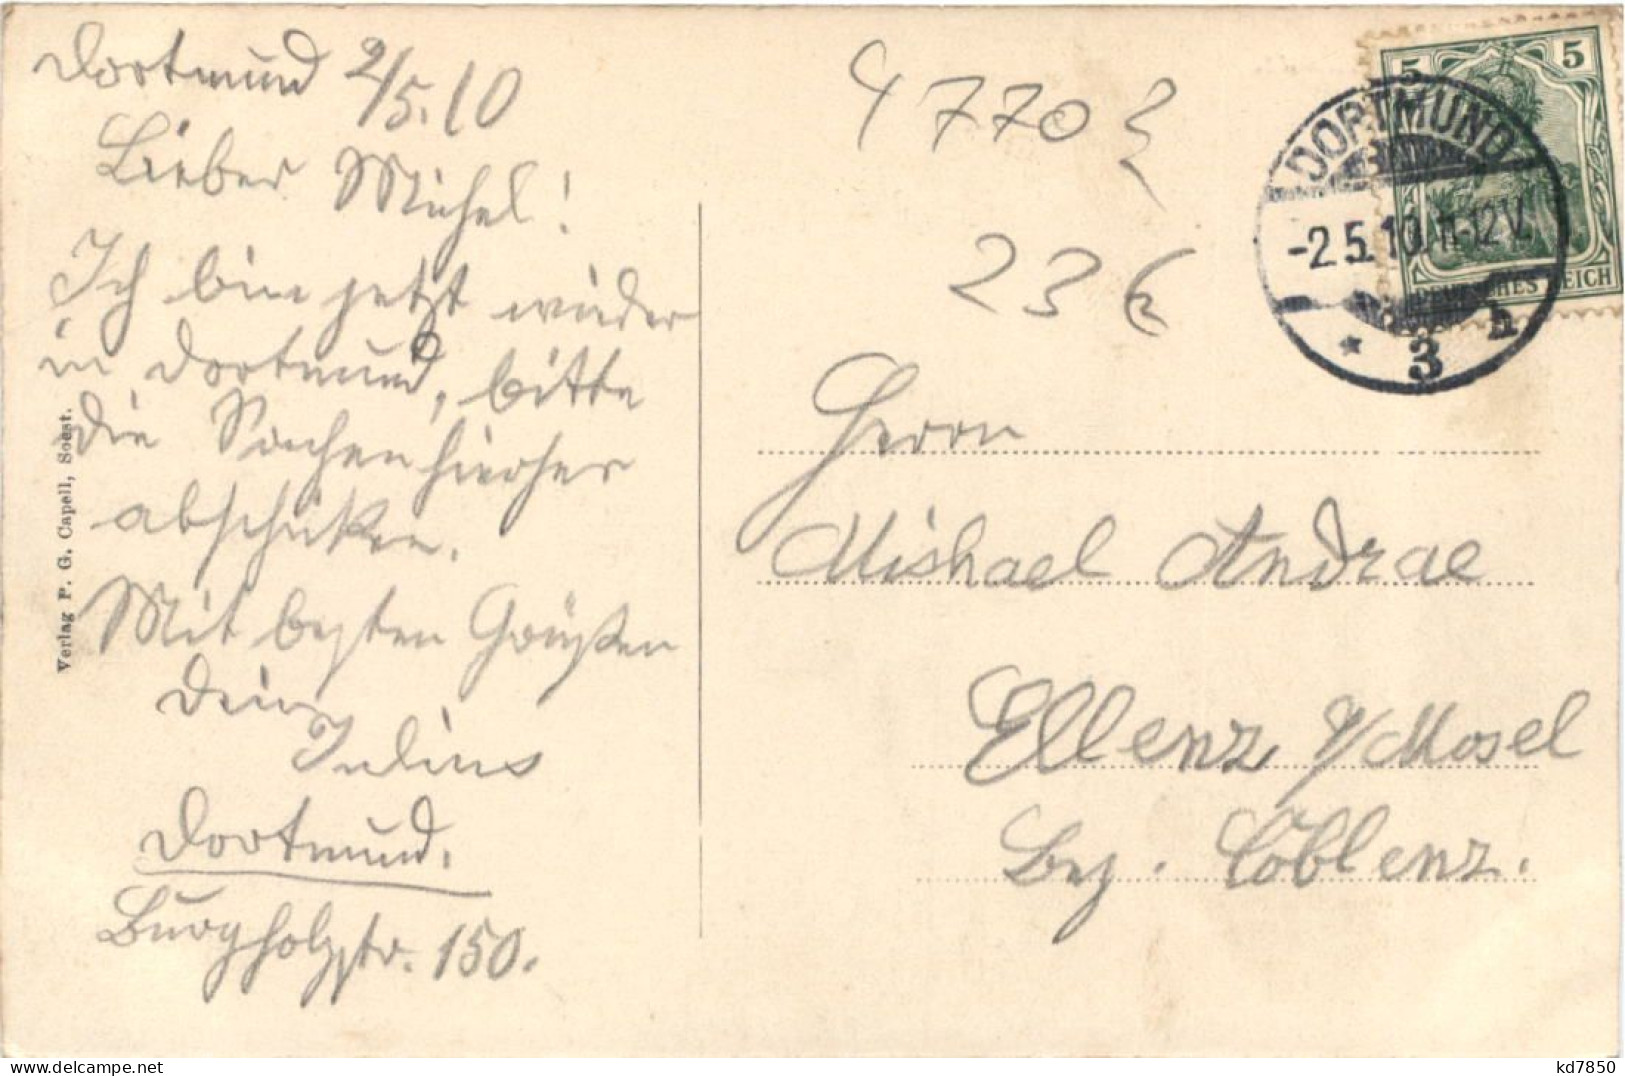 Dortmund 2/5.10
Lieber Michel!
Ich bin jetzt wieder
in Dortmund, bitte
die Sachen hierher
abschicken.
Mit besten Grüßen
Dein
Julius
Dortmund.
Burgholzstr. 150.
Verlag P. G. Capell, Soest.
4770
23 €
DORTMUND
-2.5.10.11-12V.
* 3 h
5 5
DEUTSCHES REICH
Herrn
Mishael Andrae
Ellenz a/Mosel
Bez. Coblenz.
kd7850